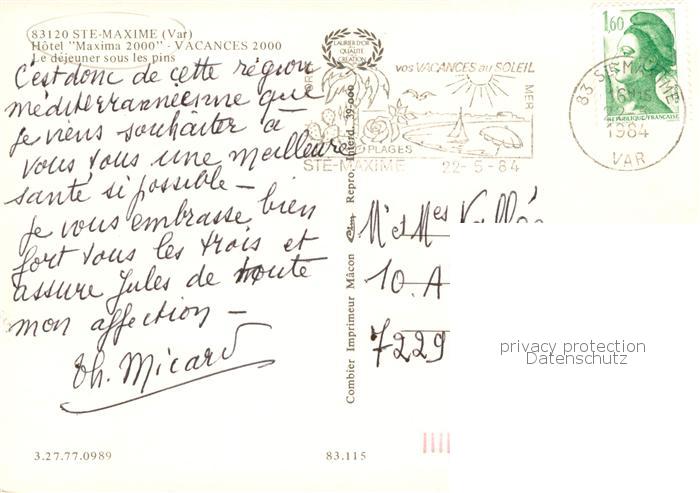 83120 STE-MAXIME (Var)
Hôtel "Maxima 2000" - VACANCES 2000
Le déjeuner sous les pins
C'est donc de cette région
méditerranéenne que
je viens souhaiter à
vous tous une meilleure
santé si possible –
Je vous embrasse bien
fort tous les trois et
assure Jules de toute
mon affection –
Th. Micard
3.27.77.0989
83.115
LAURIER D'OR
DE LA
QUALITÉ
CRÉATION
Combier Imprimeur Mâcon Repro. Interd. 39-000
vos VACANCES au SOLEIL
MER
PLAGES
STE-MAXIME 22-5-84
1,60
REPUBLIQUE FRANÇAISE
83 STE MAXIME
1984
VAR
Mr et Mes
10. A
7229
privacy protection
Datenschutz